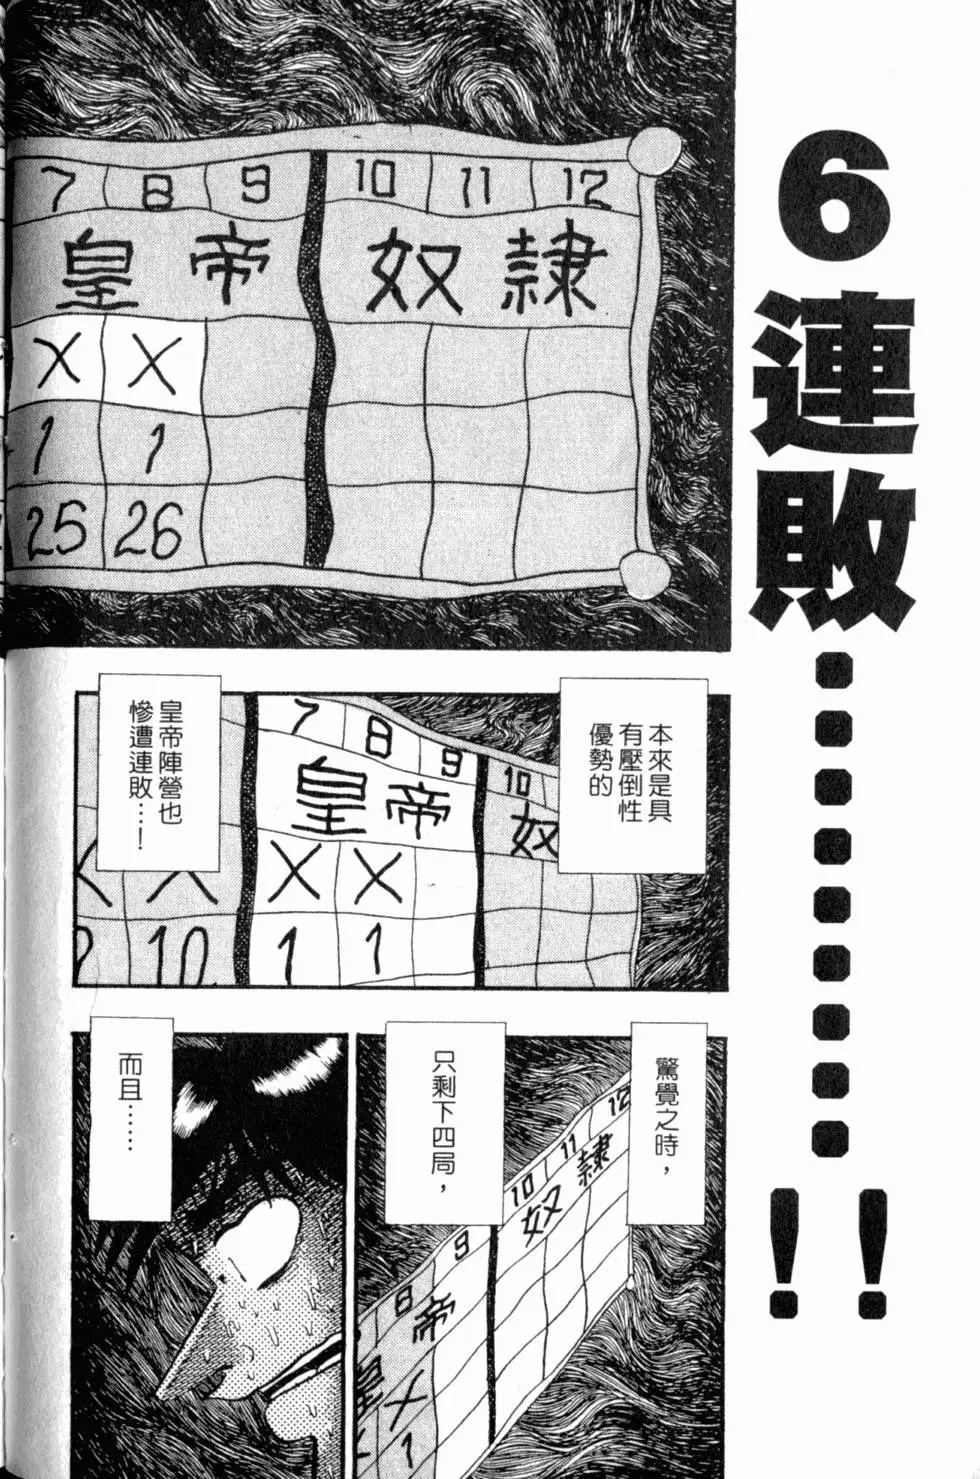 6連敗……………!!
7 8 9 10 11 12
皇帝 奴隸
X X
1 1
25 26
本來是具
有壓倒性
優勢的
皇帝陣營也
慘遭連敗…!
7 8 9 10
皇帝 奴
X X X X
10 1 1
驚覺之時,
只剩下四局,
8 9 10 11 12
皇帝 奴隸
X
1
而且……